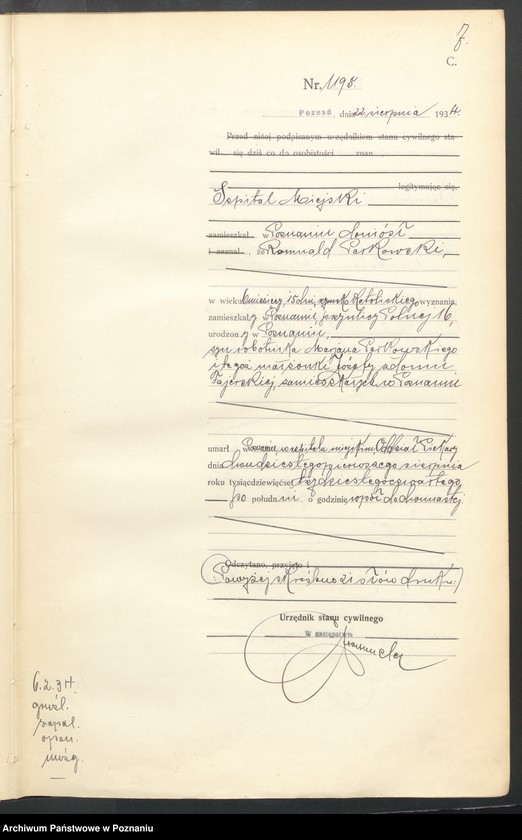 7.
C.
Nr. 1195.
Poznań, dnia 22 sierpnia 1934.
Przed niżej podpisanym urzędnikiem stanu cywilnego sta-
wił się dziś co do osobistości znan
legitymując się,
Szpital Miejski
zamieszkał w Poznaniu doniósł
i zeznał, że Romuald Perkowski,
w wieku 15 dni, rzymsko katolickiego wyznania,
zamieszkały w Poznaniu przy ulicy Polnej 16,
urodzony w Poznaniu,
syn robotnika Marjana Perkowskiego
i tegoż małżonki Józefy z domu
zamieszkałych w Poznaniu
umarł w Poznaniu w szpitalu miejskim Oddział
dnia dwudziestego pierwszego sierpnia
roku tysiącdziewięćset trzydziestego czwartego
po południu o godzinie wpół do dwunastej.
Odczytano, przyjęto i
(Powyżej skreślono słów druku.)
Urzędnik stanu cywilnego
W zastępstwie
6.2.34.
gruźl.
zapal.
opon.
mózg.
Archiwum Państwowe w Poznaniu